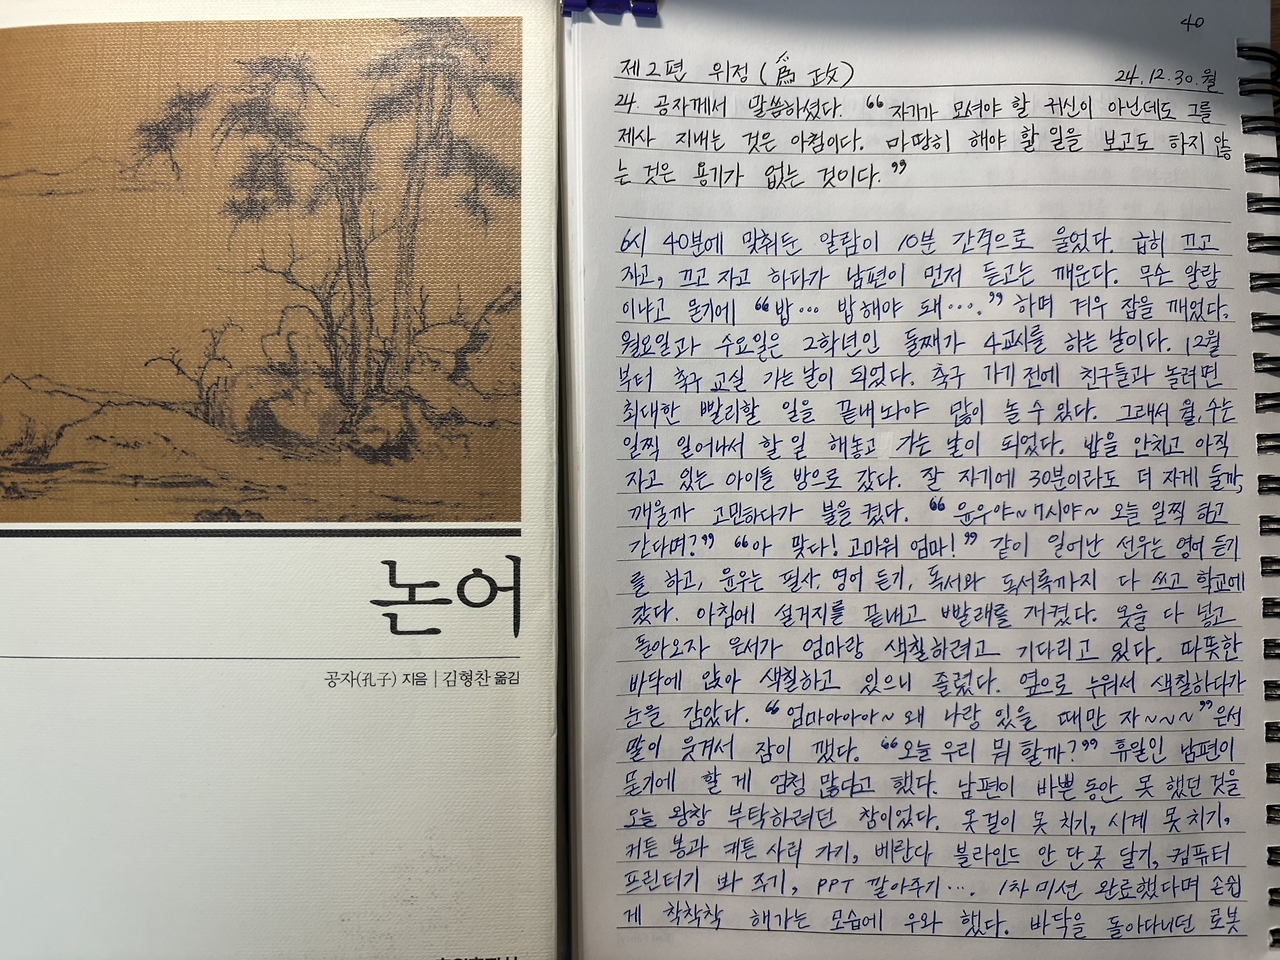 논어
공자(孔子) 지음 | 김형찬 옮김
40
제2편 위정(爲政) 24.12.30.월
24. 공자께서 말씀하셨다. “자기가 모셔야 할 귀신이 아닌데도 그를
제사 지내는 것은 아첨이다. 마땅히 해야 할 일을 보고도 하지 않
는 것은 용기가 없는 것이다.”
6시 40분에 맞춰둔 알람이 10분 간격으로 울었다. 급히 끄고
자고, 끄고 자고 하다가 남편이 먼저 듣고는 깨운다. 무슨 알람
이냐고 묻기에 “밥… 밥해야 돼….” 하며 겨우 잠을 깨었다.
월요일과 수요일은 2학년인 둘째가 4교시를 하는 날이다. 12월
부터 축구 교실 가는 날이 되었다. 축구 가기 전에 친구들과 놀려면
최대한 빨리할 일을 끝내놔야 많이 놀 수 있다. 그래서 월,수는
일찍 일어나서 할 일 해놓고 가는 날이 되었다. 밥을 안치고 아직
자고 있는 아이들 방으로 갔다. 잘 자기에 30분이라도 더 자게 둘까,
깨울까 고민하다가 불을 켰다. “윤우야~ 7시야~ 오늘 일찍 하고
간다며?” “아 맞다! 고마워 엄마!” 같이 일어난 선우는 영어 듣기
를 하고, 윤우는 필사, 영어 듣기, 독서와 독서록까지 다 쓰고 학교에
갔다. 아침에 설거지를 끝내고 빨래를 개켰다. 옷을 다 넣고
돌아오자 은서가 엄마랑 색칠하려고 기다리고 있다. 따뜻한
바닥에 앉아 색칠하고 있으니 졸렸다. 옆으로 누워서 색칠하다가
눈을 감았다. “엄마아아아~ 왜 나랑 있을 때만 자~~~” 은서
말이 웃겨서 잠이 깼다. “오늘 우리 뭐 할까?” 휴일인 남편이
묻기에 할 게 엄청 많다고 했다. 남편이 바쁜 동안 못 했던 것을
오늘 왕창 부탁하려던 참이었다. 옷걸이 못 치기, 시계 못 치기,
커튼 봉과 커튼 사러 가기, 베란다 블라인드 안 단 곳 달기, 컴퓨터
프린터기 봐 주기, PPT 깔아주기…. 1차 미션 완료했다며 손쉽
게 착착착 해가는 모습에 우와 했다. 바닥을 돌아다니던 로봇